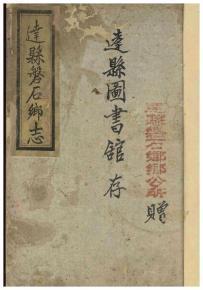 達縣磐石鄉志
達縣圖書舘 存
達縣磐石鄉鄉公所
贈